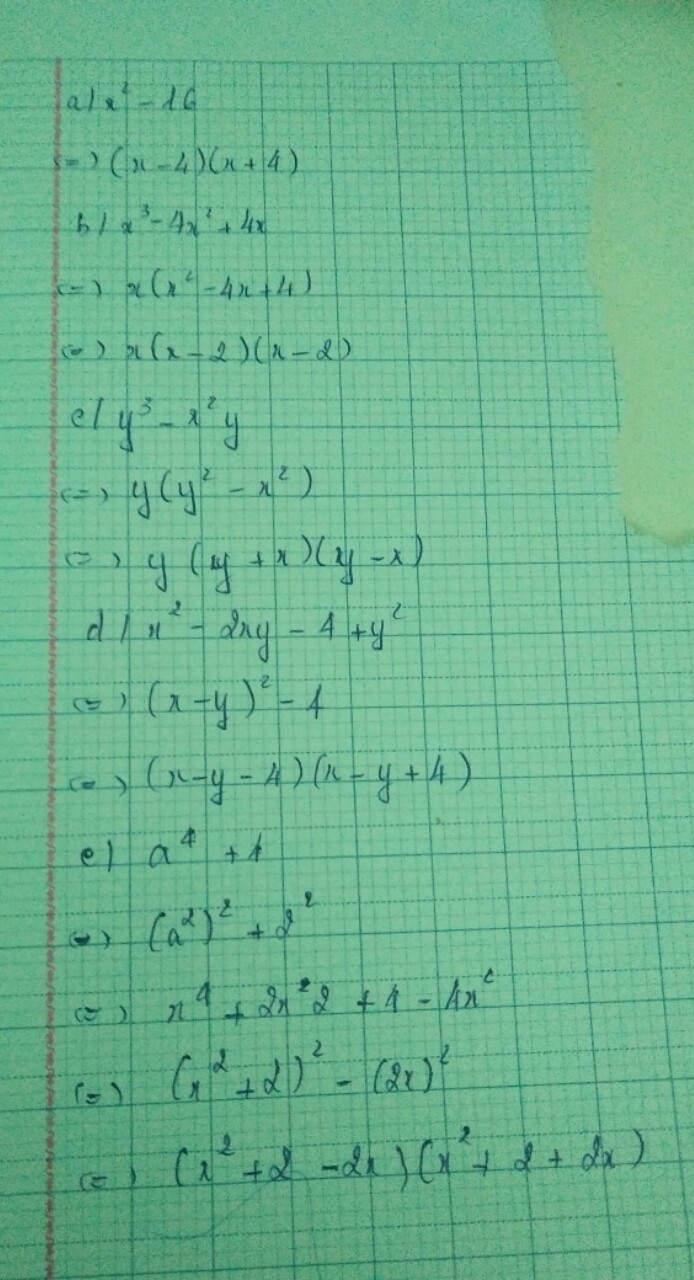 a/ x² - 16
<=> (x - 4)(x + 4)
b/ x³ - 4x² + 4x
<=> x(x² - 4x + 4)
<=> x(x - 2)(x - 2)
c/ y³ - x²y
<=> y(y² - x²)
<=> y(y + x)(y - x)
d/ x² - 2xy - 4 + y²
<=> (x - y)² - 4
<=> (x - y - 4)(x - y + 4)
e) a⁴ + 4
<=> (a²)² + 2²
<=> x⁴ + 2x²2 + 4 - 4x²
<=> (x² + 2)² - (2x)²
<=> (x² + 2 - 2x)(x² + 2 + 2x)